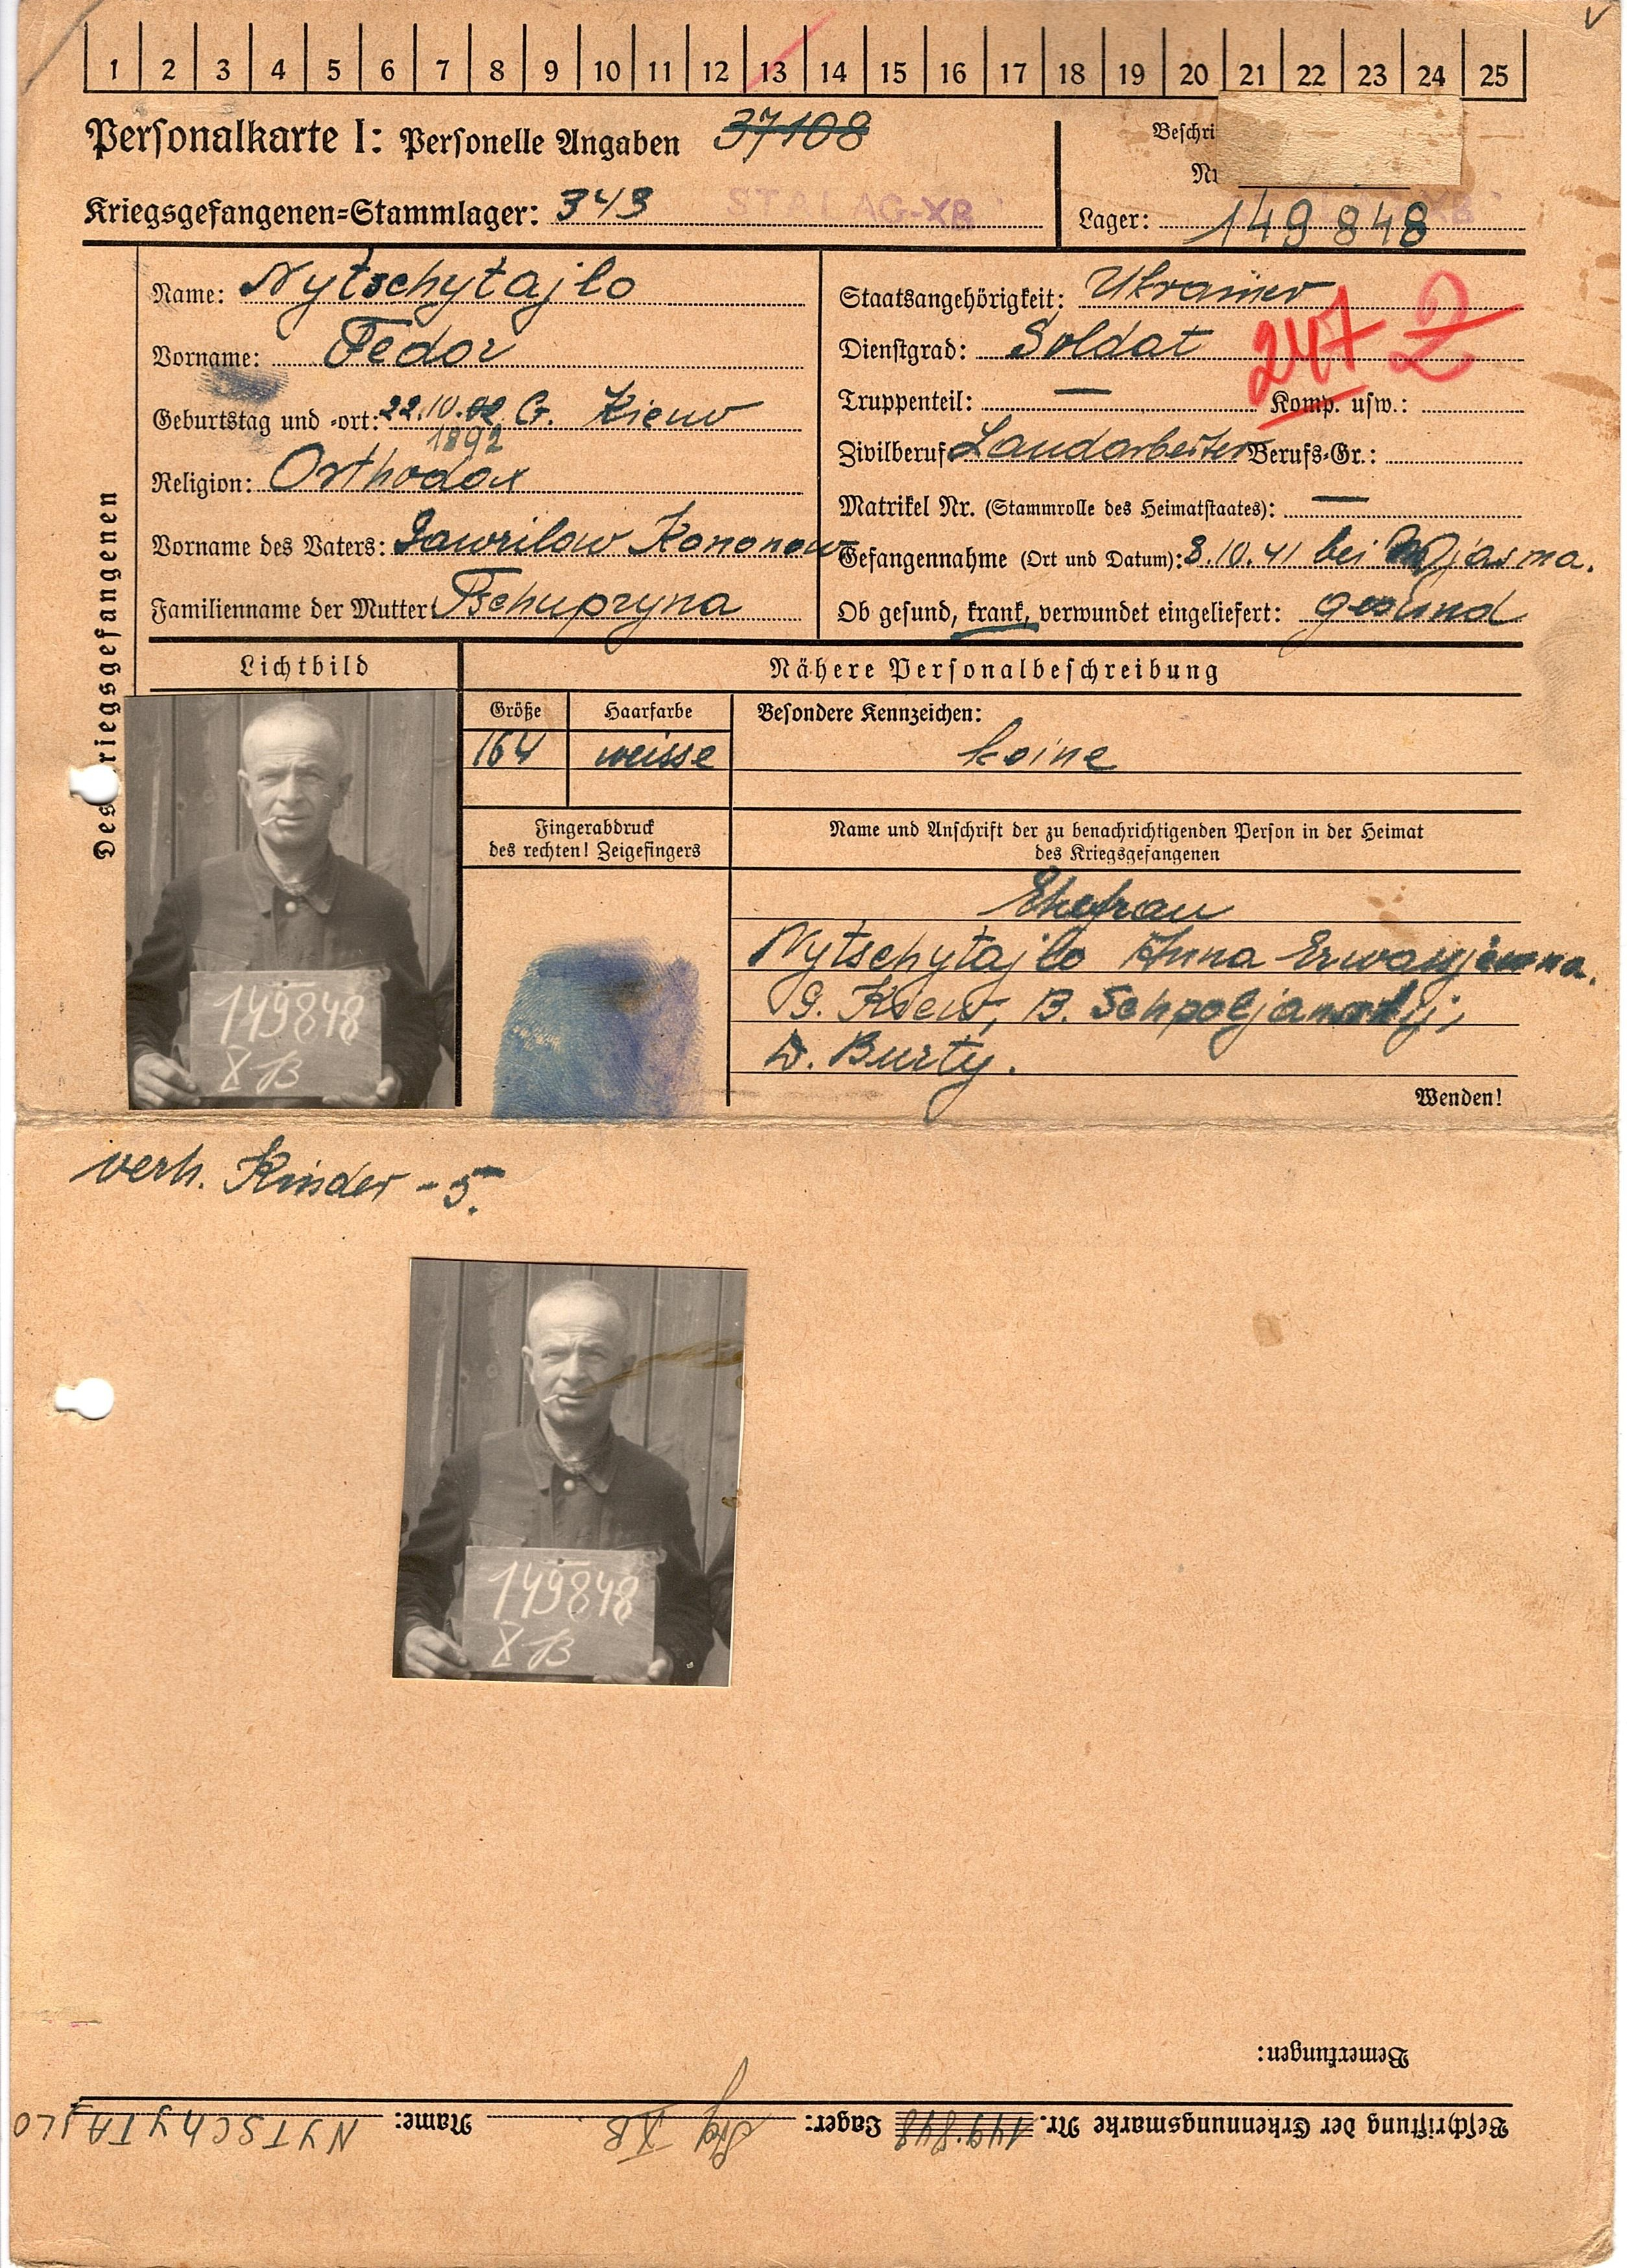 1 2 3 4 5 6 7 8 9 10 11 12 13 14 15 16 17 18 19 20 21 22 23 24 25
Personalkarte I: Personelle Angaben 37108
Beschri
Kriegsgefangenen-Stammlager: 343 STALAG-XB
Lager: 149848 XB
Des riegsgefangenen
Name: Nytschytajlo
Vorname: Fedor
Geburtstag und -ort: 22.10.02 G. Kiew
1892
Religion: Orthodox
Vorname des Vaters: Gawrilow Kononow
Familienname der Mutter: Tschupryna
Staatsangehörigkeit: Ukrainer
Dienstgrad: Soldat 247 2
Truppenteil: — Komp. usw.:
Zivilberuf: Landarbeiter Berufs-Gr.:
Matrikel Nr. (Stammrolle des Heimatstaates): —
Gefangennahme (Ort und Datum): 8.10.41 bei Wjasma.
Ob gesund, krank, verwundet eingeliefert: gesund
Lichtbild
Nähere Personalbeschreibung
Größe Haarfarbe Besondere Kennzeichen:
164 weisse keine
Fingerabdruck
des rechten! Zeigefingers
Name und Anschrift der zu benachrichtigenden Person in der Heimat
des Kriegsgefangenen
Ehefrau
Nytschytajlo Anna
G. Kiew, B. Schpoljanskij,
D. Burty.
Wenden!
149848
X B
verh. Kinder - 5.
149848
X B
Bemerkungen:
Beschriftung der Erkennungsmarke Nr. 149.848 Lager: XB Name: NYTSCHYTAJLO